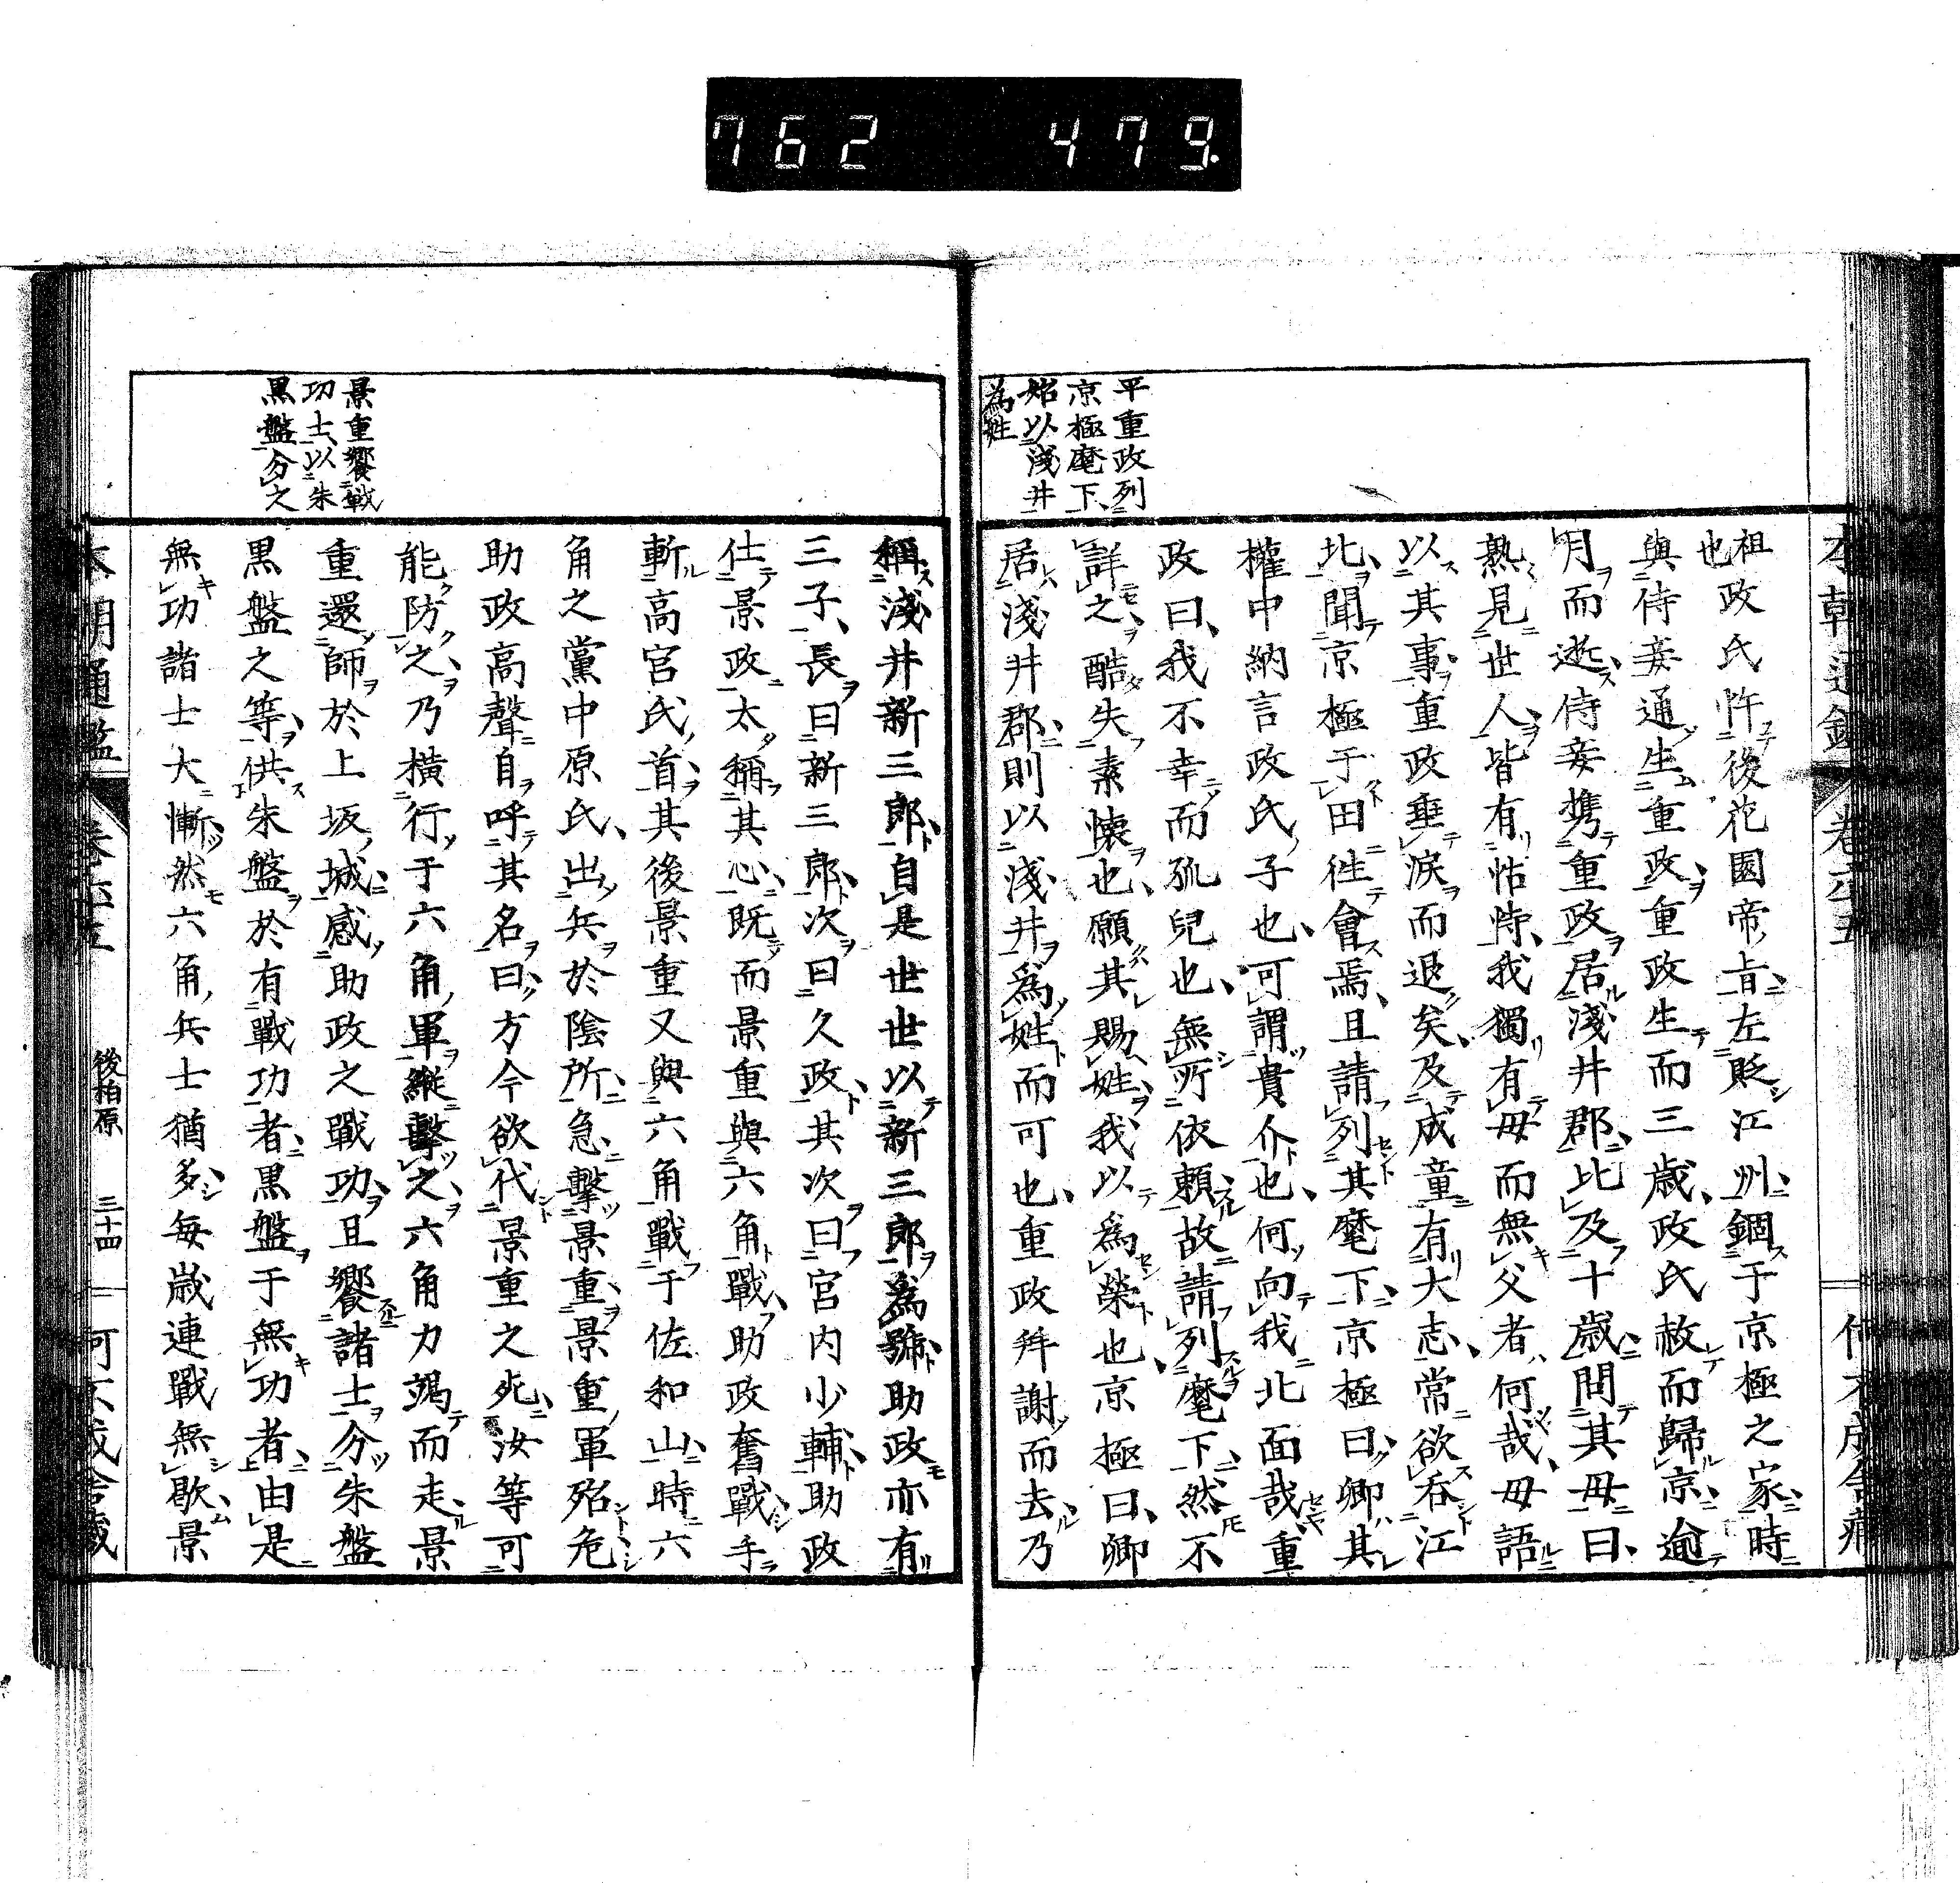 762 479
本朝通鑑 卷六十五 何不成舍藏
平重政列
京極麾下
始以淺井
為姓
祖政氏忤後花園帝旨左貶江州錮于京極之家時
也與侍妾通生重政重政生而三歳政氏赦而歸京逾
月而逝侍妾携重政居淺井郡比及十歳問其毋曰
熟見世人皆有怙恃我獨有毋而無父者何哉毋語
以其事重政垂涙而退矣及成童有大志常欲呑江
北聞京極于田徃會焉且請列其麾下京極曰卿其
權中納言政氏子也可謂貴介也何向我北面哉重
政曰我不幸而孤兒也無所依賴故請列麾下然不
詳之酷失素懷也願其賜姓我以為榮也京極曰卿
居淺井郡則以淺井爲姓而可也重政拜謝而去乃
景重饗戰
功士以朱
黒盤分之
稱淺井新三郎自是世世以新三郎爲號助政亦有
三子長曰新三郎次曰久政其次曰宮内少輔助政
仕景政太稱其心既而景重與六角戰助政奮戰手
斬高宮氏首其後景重又與六角戰于佐和山時六
角之黨中原氏出兵於陰所急擊景重景重軍殆危
助政高聲自呼其名曰方今欲代景重之死汝等可
能防之乃横行于六角軍縱擊之六角力竭而走景
重還師於上坂城感助政之戰功且饗諸士分朱盤
黒盤之等供朱盤於有戰功者黒盤于無功者由是
無功諸士大慚然六角兵士猶多毎歳連戰無歇景
本朝通鑑 卷六十五 後柏原 三十四 何不成舍藏